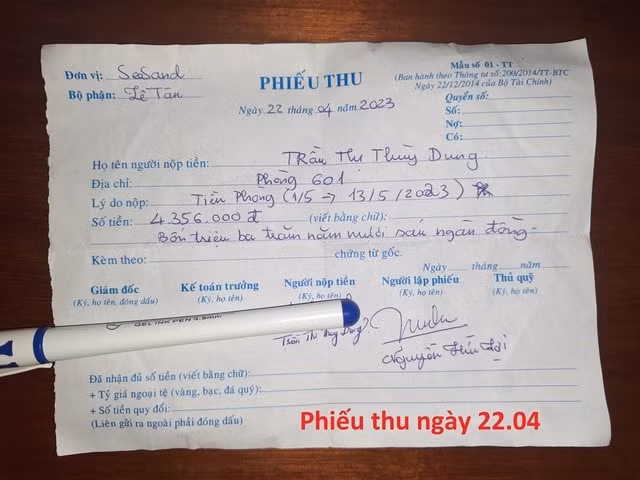 Đơn vị: SeSand
Bộ phận: Lê Tân
PHIẾU THU
Ngày 22 tháng 04 năm 2023
Mẫu số 01 - TT
(Ban hành theo Thông tư số: 200/2014/TT-BTC
Ngày 22/12/2014 của Bộ Tài Chính)
Quyển số:
Số:
Nợ:
Có:
Họ tên người nộp tiền: Trần Thị Thùy Dung
Địa chỉ: Phòng 601
Lý do nộp: Tiền Phòng (1/5 → 13/5/2023)
Số tiền: 4.356.000 đ (viết bằng chữ):
Bốn triệu ba trăm năm mươi sáu ngàn đồng-
Kèm theo: chứng từ gốc.
Ngày tháng năm
Giám đốc Kế toán trưởng Người nộp tiền Người lập phiếu Thủ quỹ
(Ký, họ tên, đóng dấu) (Ký, họ tên) (Ký, họ tên) (Ký, họ tên) (Ký, họ tên)
GEL INK PEN
Trần Thị Thùy Dung
Đã nhận đủ số tiền (viết bằng chữ):
+ Tỷ giá ngoại tệ (vàng, bạc, đá quý):
+ Số tiền quy đổi:
(Liên gửi ra ngoài phải đóng dấu)
Phiếu thu ngày 22.04